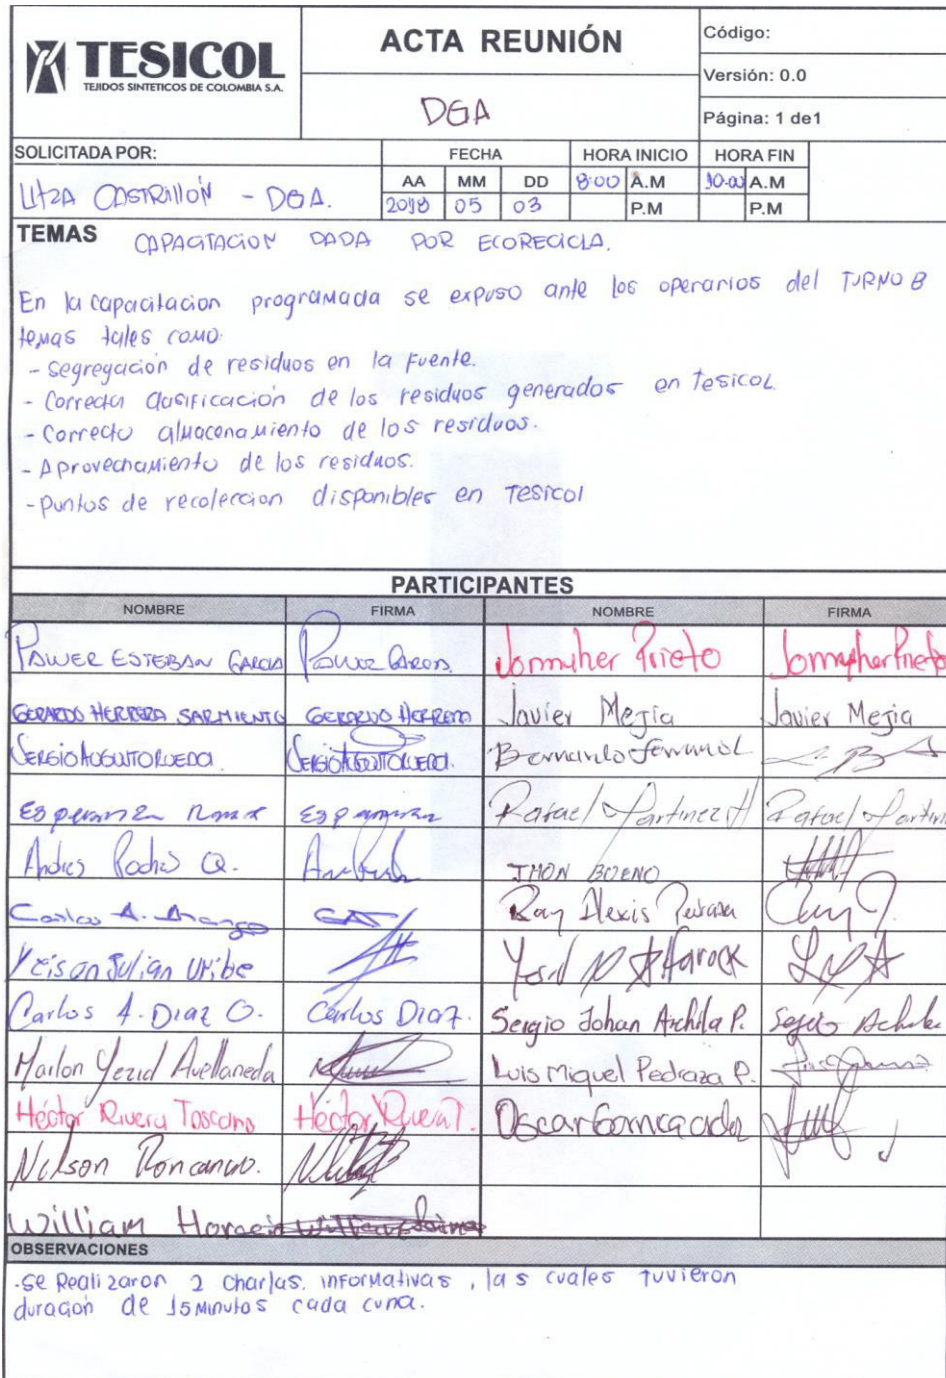 TESICOL
TEJIDOS SINTETICOS DE COLOMBIA S.A.
ACTA REUNIÓN
DGA
Código:
Versión: 0.0
Página: 1 de1
SOLICITADA POR:
LITZA CASTRILLÓN - DGA.
FECHA
HORA INICIO
HORA FIN
AA MM DD 8:00 A.M 10:00 A.M
2018 05 03 P.M P.M
TEMAS CAPACITACION DADA POR ECORECICLA.
En la capacitacion programada se expuso ante los operarios del TURNO B
temas tales como:
- Segregación de residuos en la Fuente.
- Correcta clasificación de los residuos generados en Tesicol
- Correcto almacenamiento de los residuos.
- Aprovechamiento de los residuos.
- puntos de recoleccion disponibles en Tesicol
PARTICIPANTES
NOMBRE FIRMA NOMBRE FIRMA
ESTEBAN GARCIA Prieto Prieto
GERARDO HERRERA SARMIENTO GERARDO HERRERA Javier Mejia Javier Mejia
SERGIO AUGUSTO RUEDA. SERGIO AUGUSTO RUEDA. Bernardo
Esperanza Esperanza Rafael Martinez H Rafael
Andres Q. JHON BUENO
Carlos A. Arango Ray Alexis Pedraza
Yeison Julian Uribe Yesid
Carlos A. Diaz O. Carlos Diaz. Sergio Johan Archila P. Sergio Archila
Marlon Yezid Avellaneda Luis Miguel Pedraza P.
Héctor Rivera Toscano Héctor Rivera T. Oscar
Nelson Roncancio.
William Horacio
OBSERVACIONES
-Se Realizaron 2 charlas. informativas, las cuales tuvieron
duración de 15 minutos cada cuna.